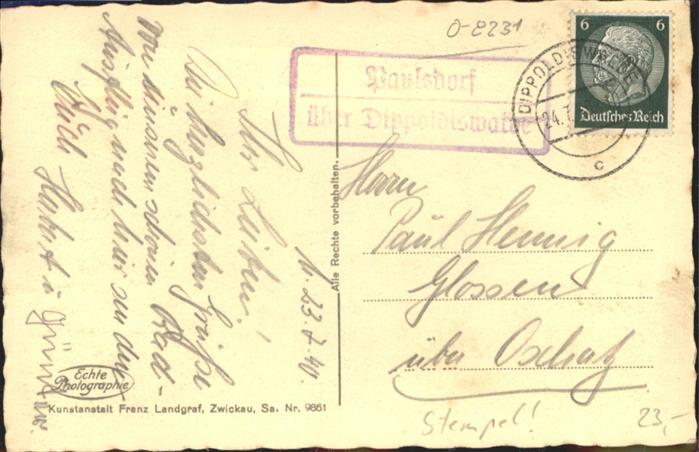 O-8231
Paulsdorf
über Dippoldiswalde
6 6
Deutsches Reich
DIPPOLDISWALDE
24.7.
c
M. 23.7.40.
Ihr Lieben!
Die herzlichsten Grüße
von unserem schönen Rad-
Ausflug nach hier senden
Euch Herbert u.
Alle Rechte vorbehalten.
Herrn
Paul Hennig
Glossen
über Oschatz
Echte
Photographie
Kunstanstalt Franz Landgraf, Zwickau, Sa. Nr. 9861
Stempel!
23,-